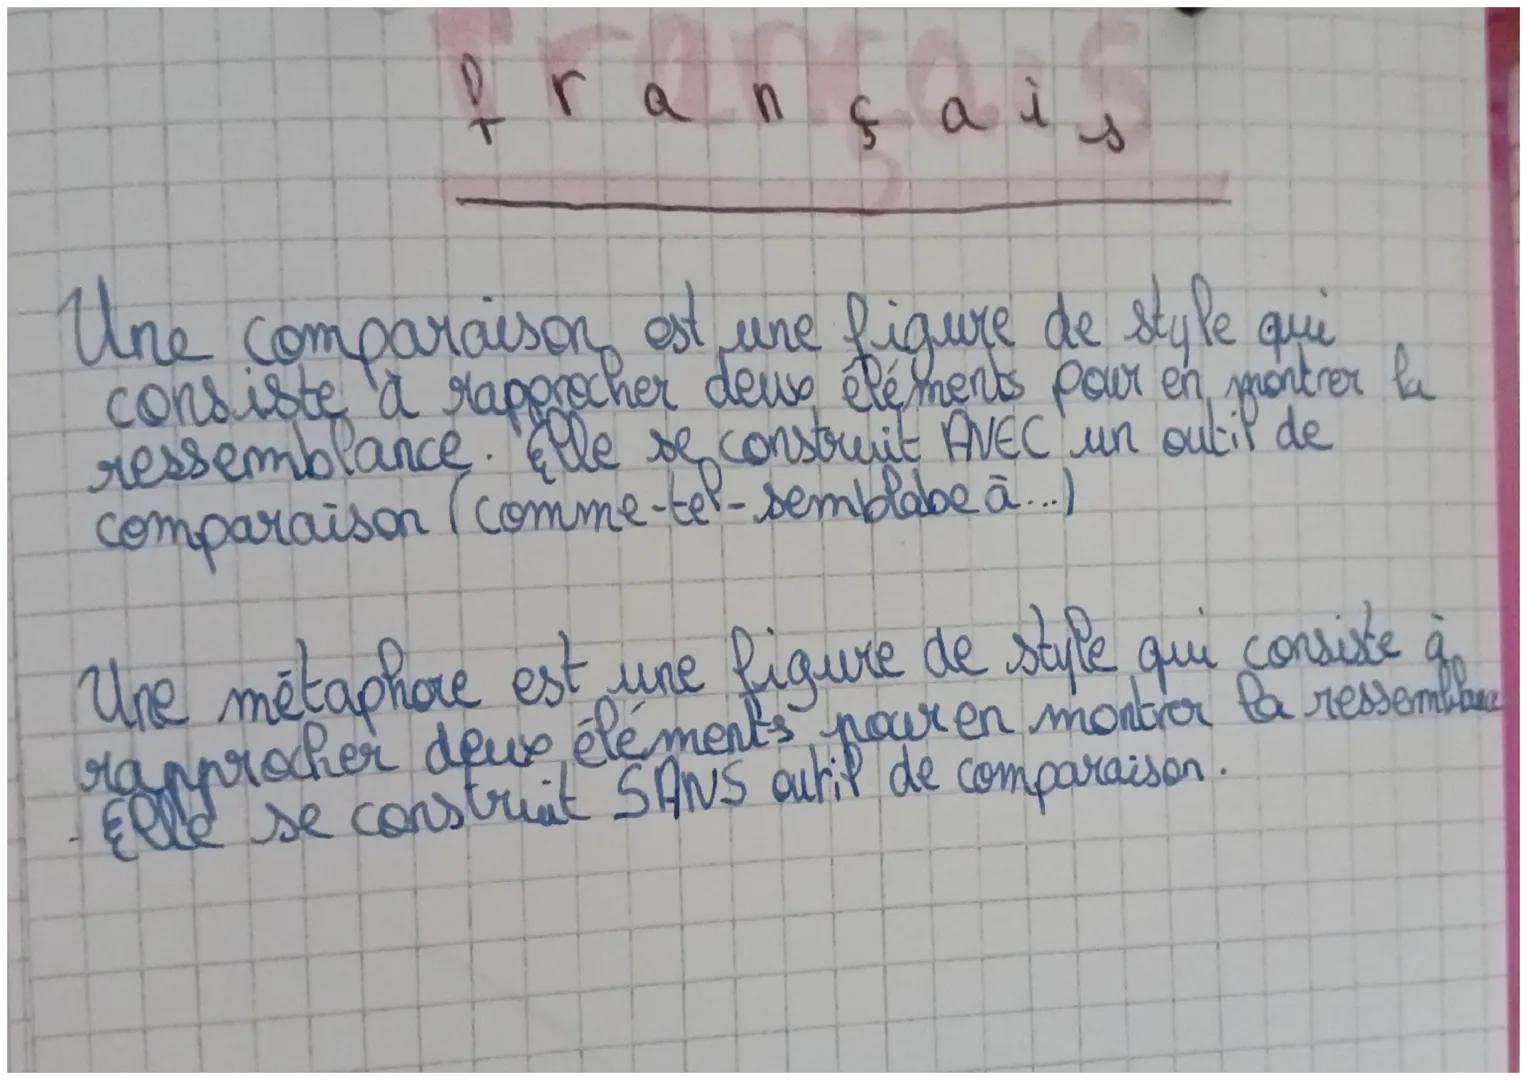 Français
Français
Une comparaison est une figure de style qui
consiste à rapporocher deux éléments pour en montrer la
ressemblance. Elle se construit AVEC un outil de
comparaison (comme-tel-semblabe à...)
Une métaphore est une figure de style qui consiste à
rapprocher deux éléments pour en montrer la ressemblance
Elle se construit SANS outil de comparaison.